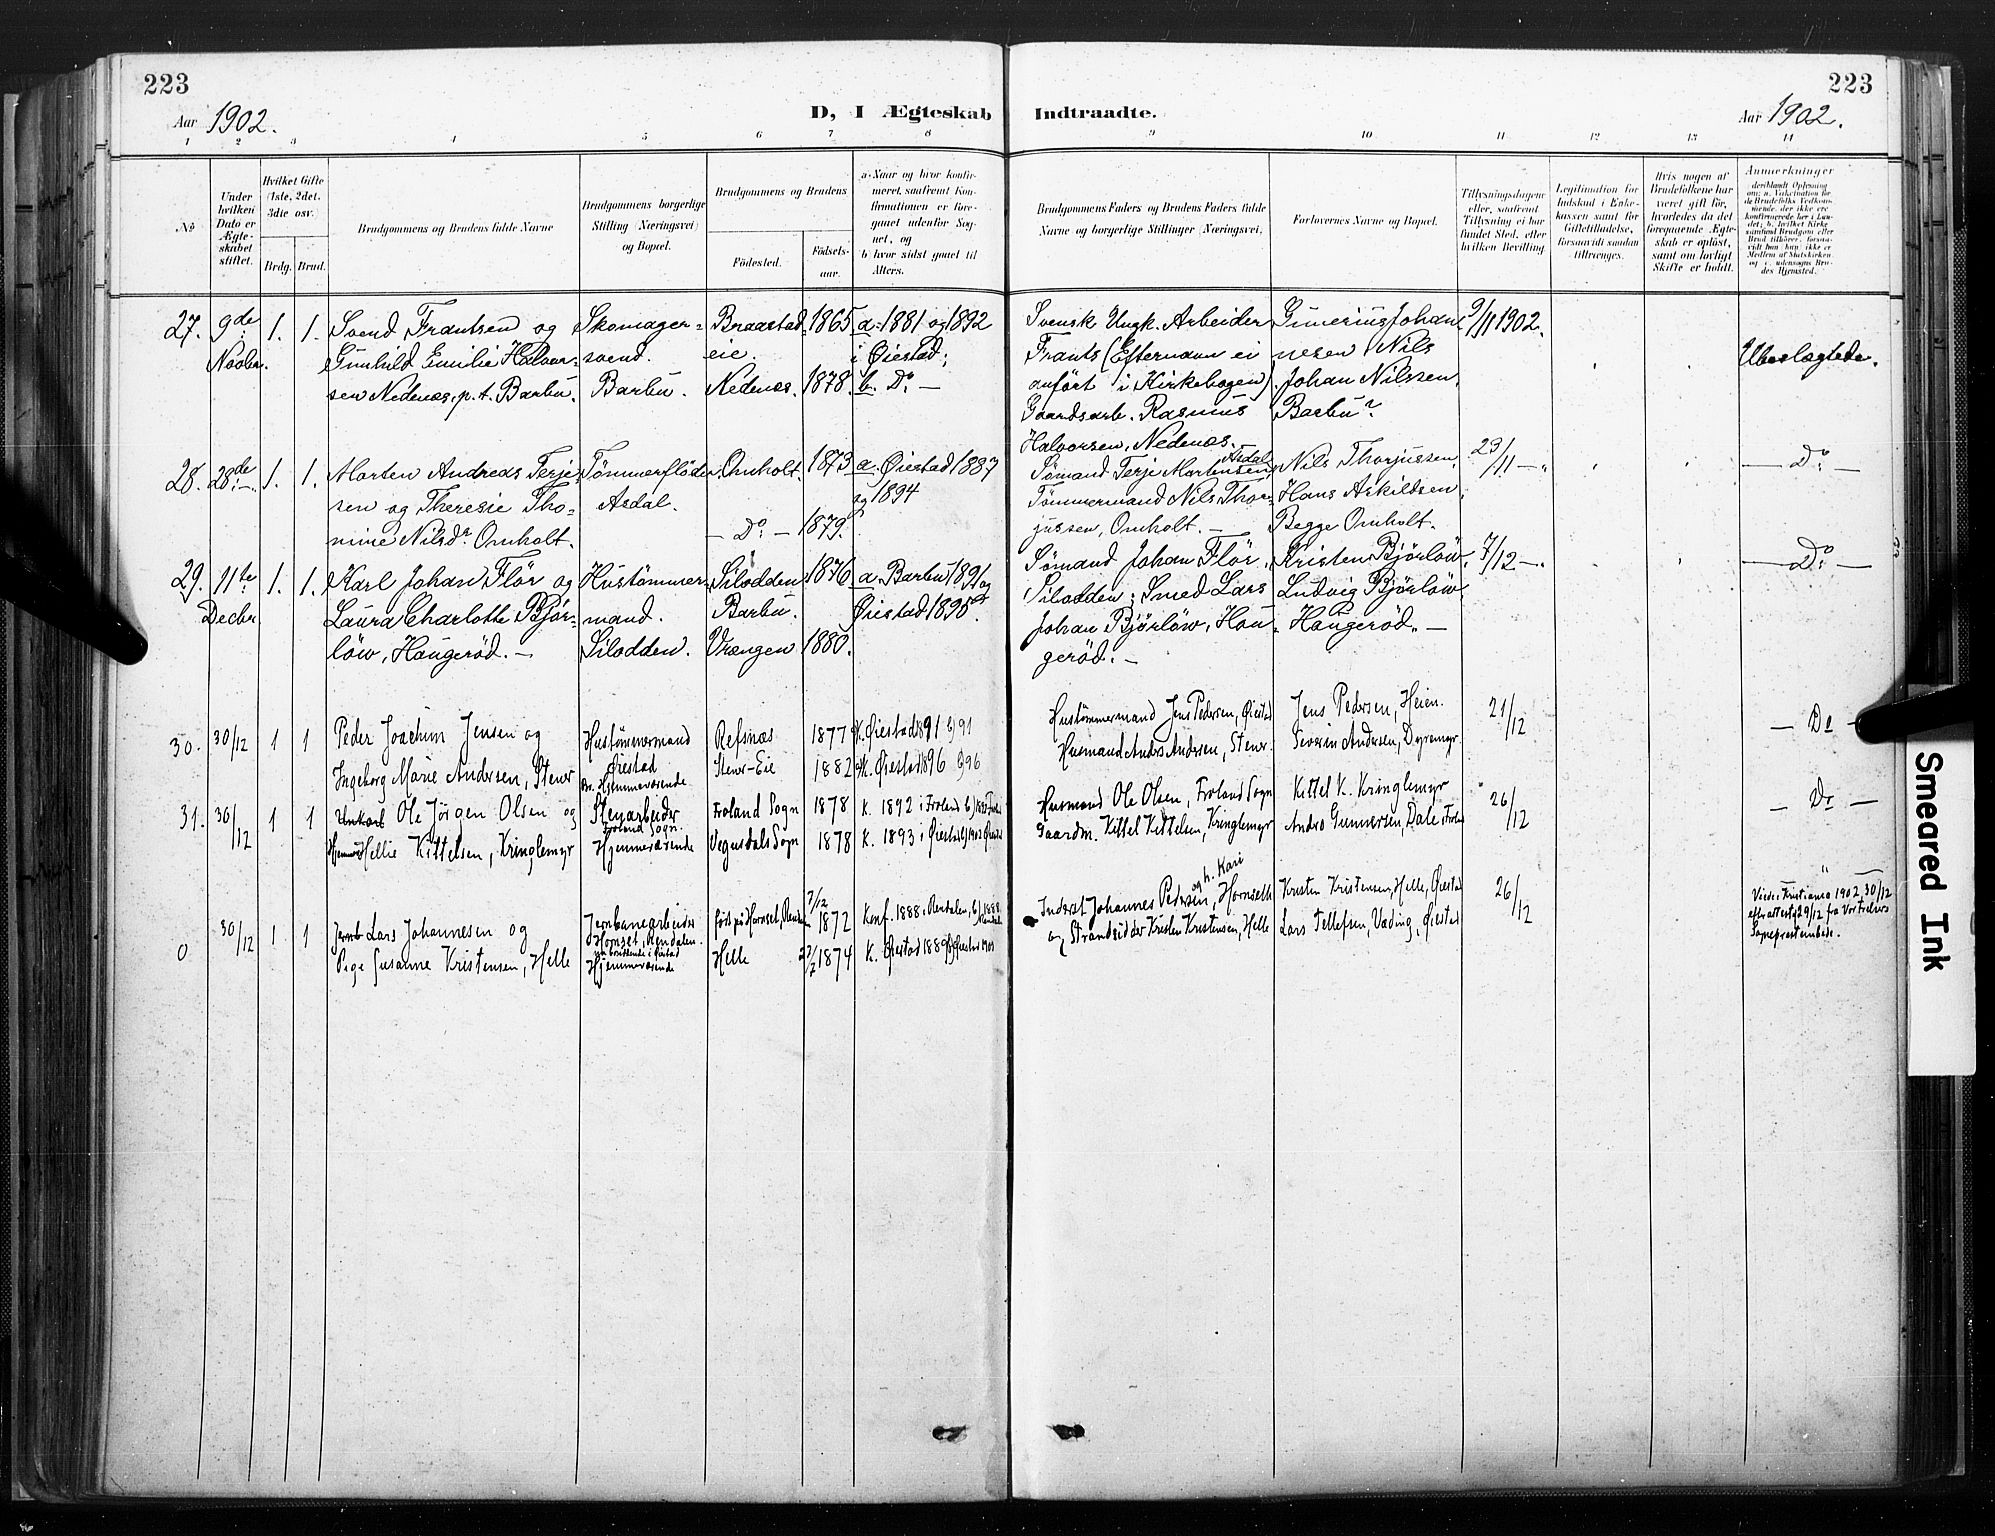 223
223
Aar 1902.
D, I Ægteskab
Indtraadte.
Aar 1902.
1 2 3 4 5 6 7 8 9 10 11 12 13 14
No
Under hvilken Dato er Ægteskabet stiftet.
Hvilket Gifte (1ste, 2det, 3die osv.)
Brdg. Brud.
Brudgommens og Brudens fulde Navne
Brudgommens borgerlige Stilling (Næringsvei) og Bopæl.
Brudgommens og Brudens
Fødested.
Fødselsaar.
a. Naar og hvor konfirmeret, saafremt Konfirmationen er foregaaet udenfor Sognet, og
b. hvor sidst gaaet til Alters.
Brudgommens Faders og Brudens Faders fulde Navne og borgerlige Stillinger (Næringsvei.)
Forlovernes Navne og Bopæl.
Tillysningsdagene eller, saafremt Tillysning ei har fundet Sted, efter hvilken Bevilling.
Legitimation for Indskud i Enkekassen samt for Giftetilladelse, forsaavidt saadan tiltrænges.
Hvis nogen af Brudefolkene har været gift før, hvorledes da det foregaaende Ægteskab er opløst, samt om lovligt Skifte er holdt.
Anmerkninger
27. 9de Novbr. 1. 1.
Svend Frantsen og
Gunhild Emilie Halvor=
sen Nedenæs, p.t. Barbu.
Skomager=
svend.
Barbu.
Braastad=
eie.
Nedenæs.
1865
1878.
a. 1881 og 1892
i Øiestad;
b. Do. —
Svensk Ungk. Arbeider
Frants (Efternavn ei
anført i Kirkebogen)
Gaardsarb. Rasmus
Halvorsen, Nedenæs.
Gunerius Johan=
nesen Nils
Johan Nilssen,
Barbu.
9/11 1902.
Ubeslægtede.
28. 28de —. 1. 1.
Morten Andreas Terje=
sen og Theresie Tho=
mine Nilsdr. Omholt.
Tømmerfløder
Asdal.
Omholt.
— Do. —
1873
1879.
a. Øiestad 1887
og 1894
Sømand Terje Mortensen, Asdal
Tømmermand Nils Thor=
jussen, Omholt. —
Nils Thorjussen,
Hans Askildsen,
Begge Omholt.
23/11 —.
— Do. —
29. 11te Decbr. 1. 1.
Karl Johan Flør og
Laura Charlotte Bjør=
løw, Haugerød. —
Hustømmer=
mand.
Silodden.
Silodden
Barbu.
Vrængen
1876
1880.
a. Barbu 1891 og
Øiestad 1895.
Sømand Johan Flør,
Silodden; Smed Lars
Johan Bjørløw, Hau=
gerød. —
Kristen Bjørløw,
Ludvig Bjørløw,
Haugerød. —
7/12 —.
— Do. —
30. 30/12 1 1
Peder Joachim Jensen og
Ingeborg Marie Andersen, Stenr
Hustømmermand
Øiestad
Br. Hjemmeværende
Refsnæs
Stenr-Eie
1877
1882
K. Øiestad 1891 b) 91
K. Øiestad 1896 b) 96
Hustømmermand Jens Pedersen, Øiestad
Husmand Anders Andersen, Stenr.
Jens Pedersen, Heien.
Severin Andersen, Dyremyr.
21/12
— Do —
31. 30/12 1 1
Unkarl Ole Jørgen Olsen og
Hellie Kittelsen, Kringlemyr
Stenarbeider
Froland Sogn.
Hjemmeværende
Froland Sogn
Vegusdals Sogn
1878
1878
K. 1892 i Froland
K. 1893 i Øiestad
Husmand Ole Olsen, Froland Sogn
Gaardm. Kittel Kittelsen, Kringlemyr
Kittel K. Kringlemyr
Andro Gunnersen, Dale i Frol.
26/12
— Do —
0 30/12 1 1
Lars Johannesen og
Pige Susanne Kristensen, Helle
Jernbanearbeider
Hornset, Rendalen.
Hjemmeværende
Født på Hornset, Rendal
Helle
7/12 1872
1874
Konf. 1888 i Rendalen, b) 1888
K. Øiestad 1889
Inderst Johannes Pedersen og h. Kari, Hornsetle
og Strandsidder Kristen Kristensen, Helle
Kristen Kristensen, Helle, Øiestad
Lars Tellefsen, Vading, Øiestad
26/12
Viede i Kristiania 1902 30/12
efter attest 29/12 fra Vor Frelsers
Sogneprestembede.
Smeared Ink